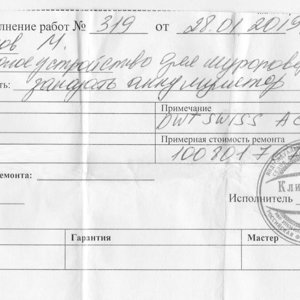 лнение работ № 319 от 28.01.2019
ов М.
ное устройство для шуроповер
ть: заказать аккумулятор
Примечание
DWT SWISS AC
Примерная стоимость ремонта
емонта:
Кли
Исполнитель
Гарантия
Мастер